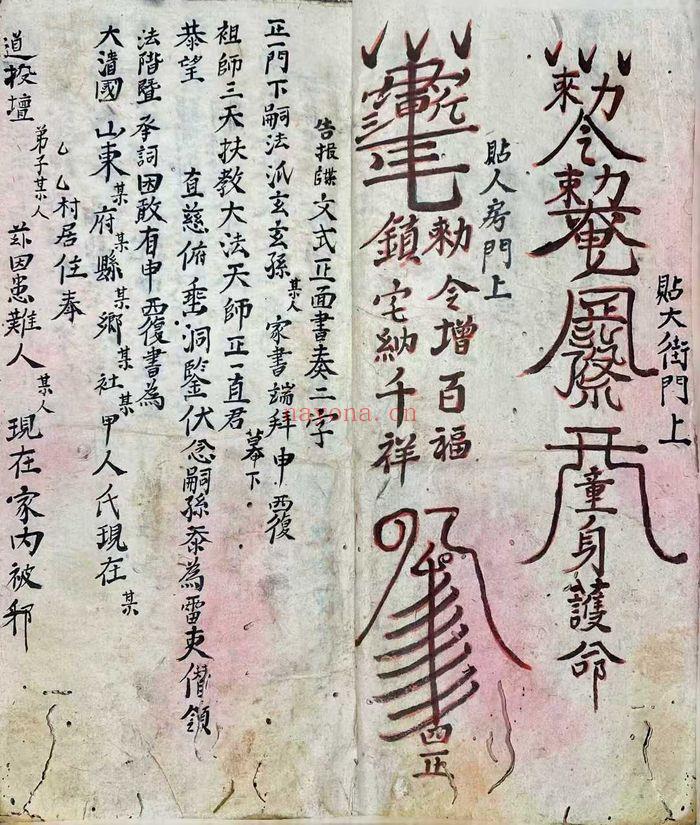 貼大街門上
勅令
童身護命
貼人房門上
勅令增百福
鎮宅納千祥
四正
告报牒文式正面書奏二字
正一門下嗣法派玄玄孫某人家書端拜申西復
祖師三天扶教大法天師正一直君幕下
恭望 直慈俯垂洞鑒伏念嗣孫忝為雷吏僭領
法階暨承詞因敢有申西復書為
大清國山東某府某縣某鄉某社某甲人氏現在某
乙乙村居住奉
道投壇弟子某人兹因患難人某人現在家内被邪
nayona.cn